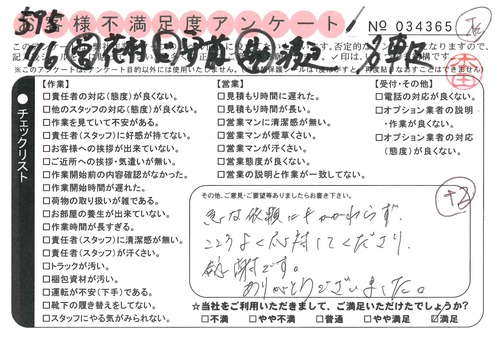 お客様不満足度アンケート
No 034365
この
否定的な
チェックリスト
【作業】
□責任者の対応(態度)が良くない。
□他のスタッフの対応(態度)が良くない。
□作業を見ていて不安がある。
□責任者(スタッフ)に好感が持てない。
□お客様への挨拶が出来ていない。
□ご近所への挨拶・気遣いが無い。
□作業開始前の内容確認がなかった。
□作業開始時間が遅れた。
□荷物の取り扱いが雑である。
□お部屋の養生が出来ていない。
□作業時間が長すぎる。
□責任者(スタッフ)に清潔感が無い。
□責任者(スタッフ)が汗くさい。
□トラックが汚い。
□梱包資材が汚い。
□運転が不安(下手)である。
□靴下の履き替えをしてない。
□スタッフにやる気がみられない。
【営業】
□見積もり時間に遅れた。
□見積もり時間が長い。
□営業マンに清潔感が無い。
□営業マンが煙草くさい。
□営業マンが汗くさい。
□営業態度が良くない。
□営業の説明と作業が一致してない。
【受付・その他】
□電話の対応が良くない。
□オプション業者の説明
・作業が良くない。
□オプション業者の対応
(態度)が良くない。
その他、ご意見・ご要望等ありましたらお書き下さい。
急な依頼にもかかわらず、
こころよく応対してくださり
感謝です。
ありがとうございました。
+2
☆当社をご利用いただきまして、ご満足いただけたでしょうか?
□不満 □やや不満 □普通 □やや満足 ☑満足